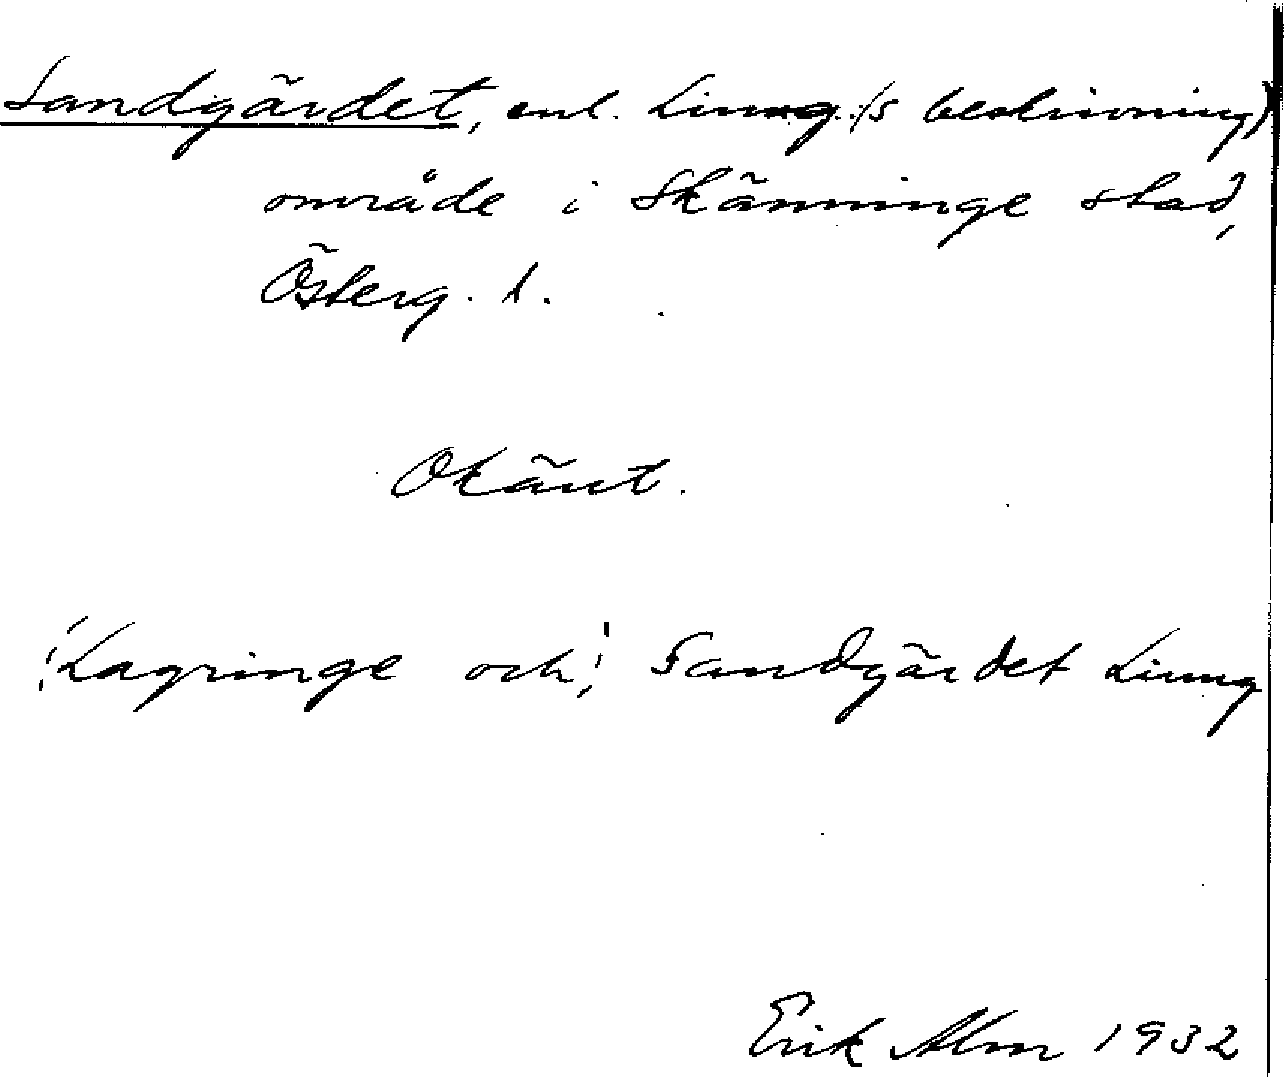 Sandgärdet, enl. Liung (:s beskrivning)
område i Skänninge stad,
Österg. l.
Okänt.
¦: Lagringe och :¦ Sandgärdet Liung
Erik Alm 1932